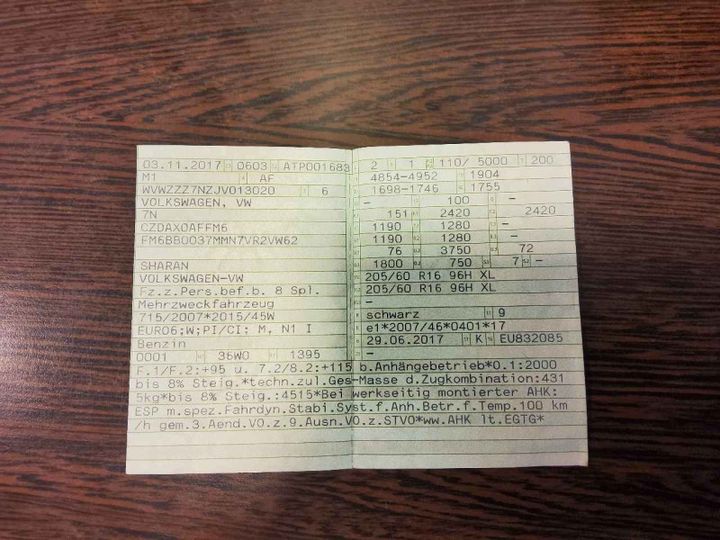 03.11.2017 0603 ATP001683
M1 AF
WVWZZZ7NZJV013020 6
VOLKSWAGEN, VW
7N
CZDAX0AFFM6
FM6BB0037MMN7VR2VW62
SHARAN
VOLKSWAGEN-VW
Fz.z.Pers.bef.b. 8 Spl.
Mehrzweckfahrzeug
715/2007*2015/45W
EURO6;W;PI/CI: M, N1 I
Benzin
0001 36W0 1395
2 1 110/ 5000 200
4854-4952 1904
1698-1746 1755
- 100 -
151 2420 2420
1190 1280 -
1190 1280 -
76 3750 72
1800 750 7 -
205/60 R16 96H XL
205/60 R16 96H XL
-
schwarz 9
e1*2007/46*0401*17
29.06.2017 K EU832085
-
F.1/F.2:+95 u. 7.2/8.2:+115 b.Anhängebetrieb*0.1:2000
bis 8% Steig.*techn.zul.Ges-Masse d.Zugkombination:431
5kg*bis 8% Steig.:4515*Bei werkseitig montierter AHK:
ESP m.spez.Fahrdyn.Stabi.Syst.f.Anh.Betr.f.Temp.100 km
/h gem.3.Aend.VO.z.9.Ausn.VO.z.STVO*ww.AHK lt.EGTG*